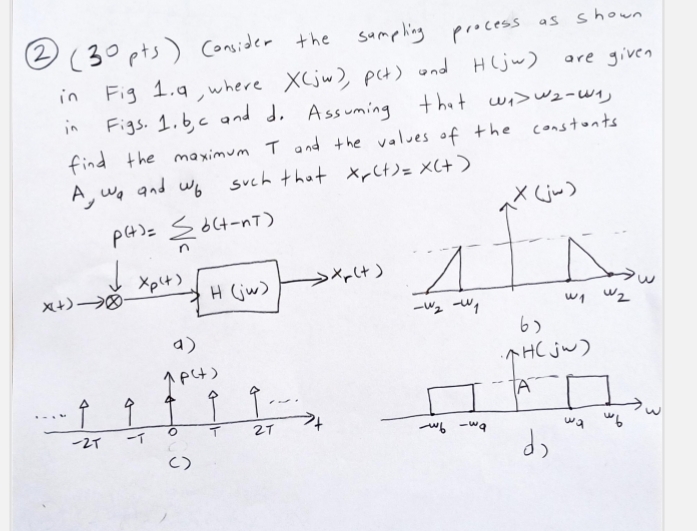 ② (30 pts) Consider the sampling process as shown
in Fig 1.a, where X(jw), p(t) and H(jw) are given
in Figs. 1.b,c and d. Assuming that w₁>w₂-w₁,
find the maximum T and the values of the constants
A, wa and wb such that xr(t)=x(t)
p(t)= Σ δ(t-nT)
n
x(t) → ⊗ xp(t) → H(jw) → xr(t)
a)
X(jw)
-w₂ -w₁ w₁ w₂ w
b)
p(t)
.... -2T -T 0 T 2T .... t
c)
H(jw)
A
-wb -wa wa wb w
d)